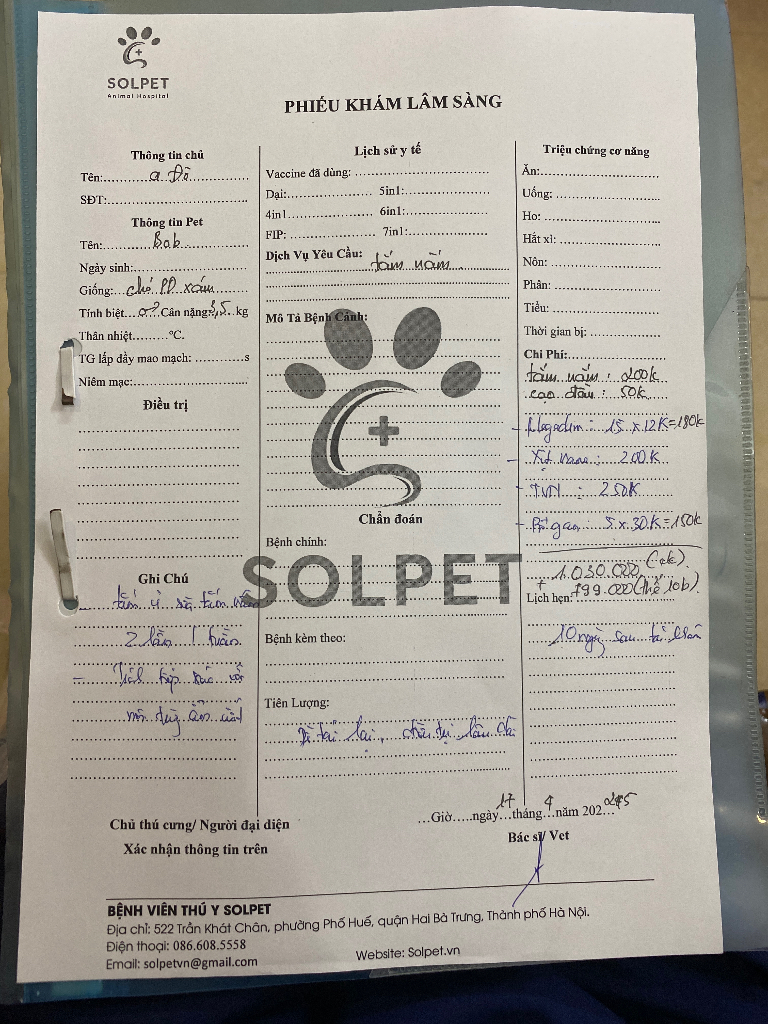 SOLPET
Animal Hospital
PHIẾU KHÁM LÂM SÀNG
Thông tin chủ
Tên: a Đô
SĐT:
Thông tin Pet
Tên: Bob
Ngày sinh:
Giống: chó PD xám
Tính biệt: ♂? Cân nặng: 3,5 kg
Thân nhiệt °C.
TG lấp đầy mao mạch: s
Niêm mạc:
Điều trị
Ghi Chú
2 lần / tuần
Lịch sử y tế
Vaccine đã dùng:
Dại: 5in1:
4in1 6in1:
FIP: 7in1:
Dịch Vụ Yêu Cầu: tắm nấm
Mô Tả Bệnh Cảnh:
SOLPET
Chẩn đoán
Bệnh chính:
Bệnh kèm theo:
Tiên Lượng:
Triệu chứng cơ năng
Ăn:
Uống:
Ho:
Hắt xì:
Nôn:
Phân:
Tiểu:
Thời gian bị:
Chi Phí:
tắm nấm: 200k
50k
15 x 12K = 180k
- Xịt : 200K
- TVN : 250K
5 x 30K = 150k
1.030.000 (ck).
+ 799.000 (thẻ 10b).
Lịch hẹn:
10 ngày sau tái khám
Giờ ngày 17 tháng 4 năm 2025
Chủ thú cưng/ Người đại diện
Xác nhận thông tin trên
Bác sĩ/ Vet
BỆNH VIÊN THÚ Y SOLPET
Địa chỉ: 522 Trần Khát Chân, phường Phố Huế, quận Hai Bà Trưng, Thành phố Hà Nội.
Điện thoại: 086.608.5558
Email: solpetvn@gmail.com
Website: Solpet.vn